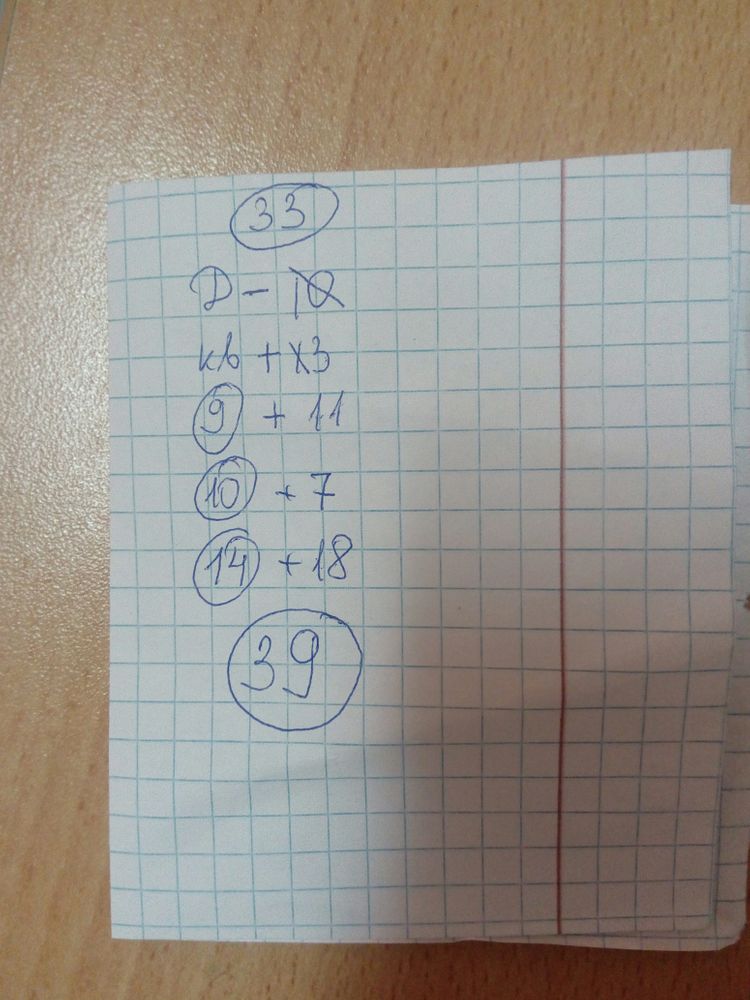 33
Д - 10
кв + х3
9 + 11
10 + 7
14 + 18
39